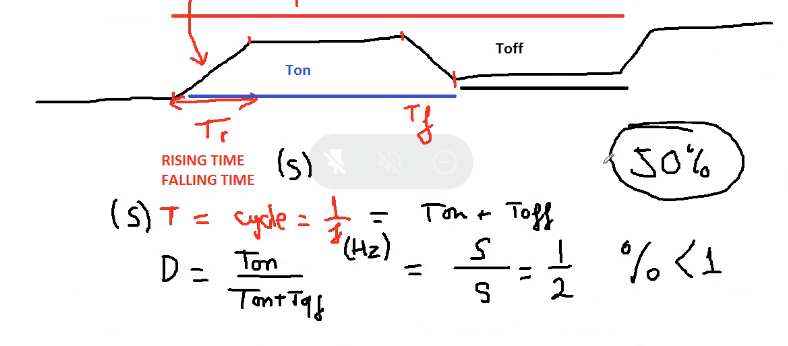 Toff
Ton
Tr
Tf
RISING TIME
FALLING TIME
(S)
(S) T = cycle = 1/f (Hz) = Ton + Toff
D = Ton/Ton+Toff = S/S = 1/2 % < 1
50%